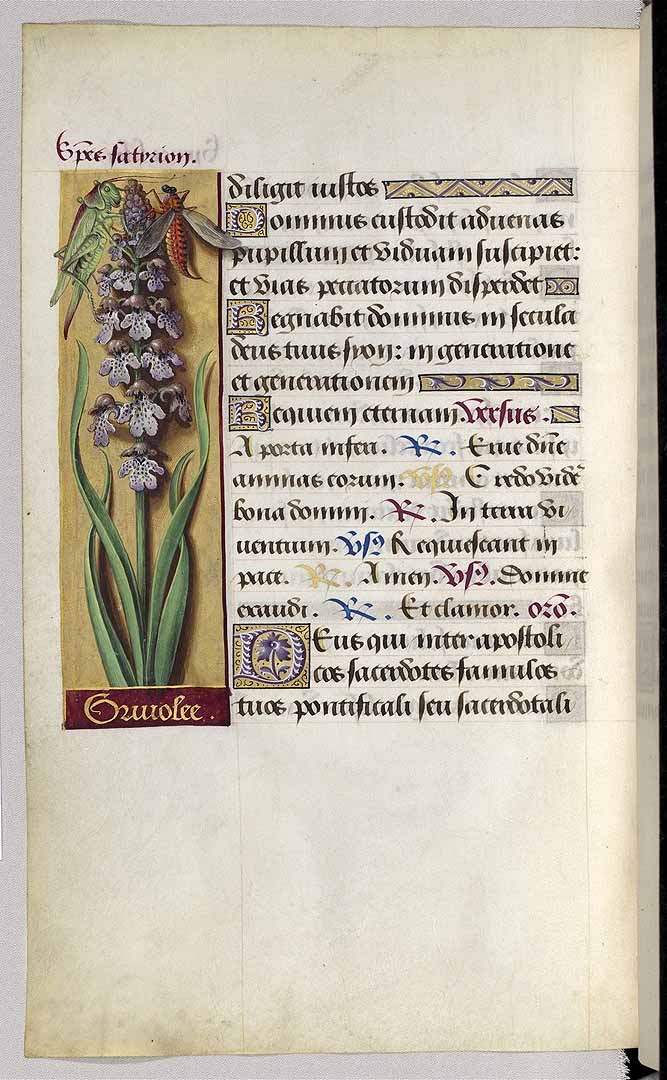 Spẽs satyrion.
diligit iustos
Dominus custodit aduenas
pupillum et viduam suscipiet:
et vias peccatorum disperdet
Regnabit dominus in secula
deus tuus syon: in generatione
et generationem
Requiem eternam. Versus.
A porta inferi. R. Erue dñe
animas eorum. vs. Credo vidẽ
bona domini. R. In terra vi
uentium. vs. Requiescant in
pace. R. Amen. vs. Domine
exaudi. R. Et clamor. orõ.
Deus qui inter apostoli
cos sacerdotes famulos
tuos pontificali seu sacerdotali